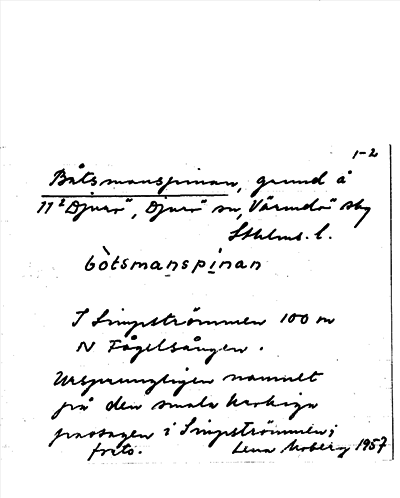 1-2
Båtsmanspinan, grund å
11² Djurö", Djurö sn, Värmdö sky
Sthlms. l.
bòtsmanspínan
I Simpströmmen 100 m
N Fågelsången.
Ursprungligen namnet
på den smala krokiga
passagen i Simpströmmen;
frits. Lena Moberg 1957